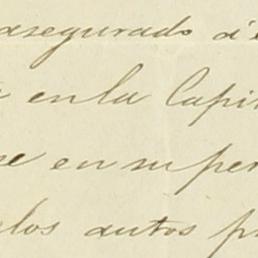 asegurado á
en la Capi
se en su per
los autos p